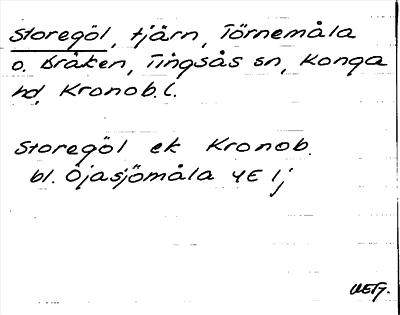 Storegöl, tjärn, Törnemåla
o. Bråken, Tingsås sn, Konga
hd, Kronob. l.
Storegöl ek Kronob.
bl. Öjasjömåla 4E 1j